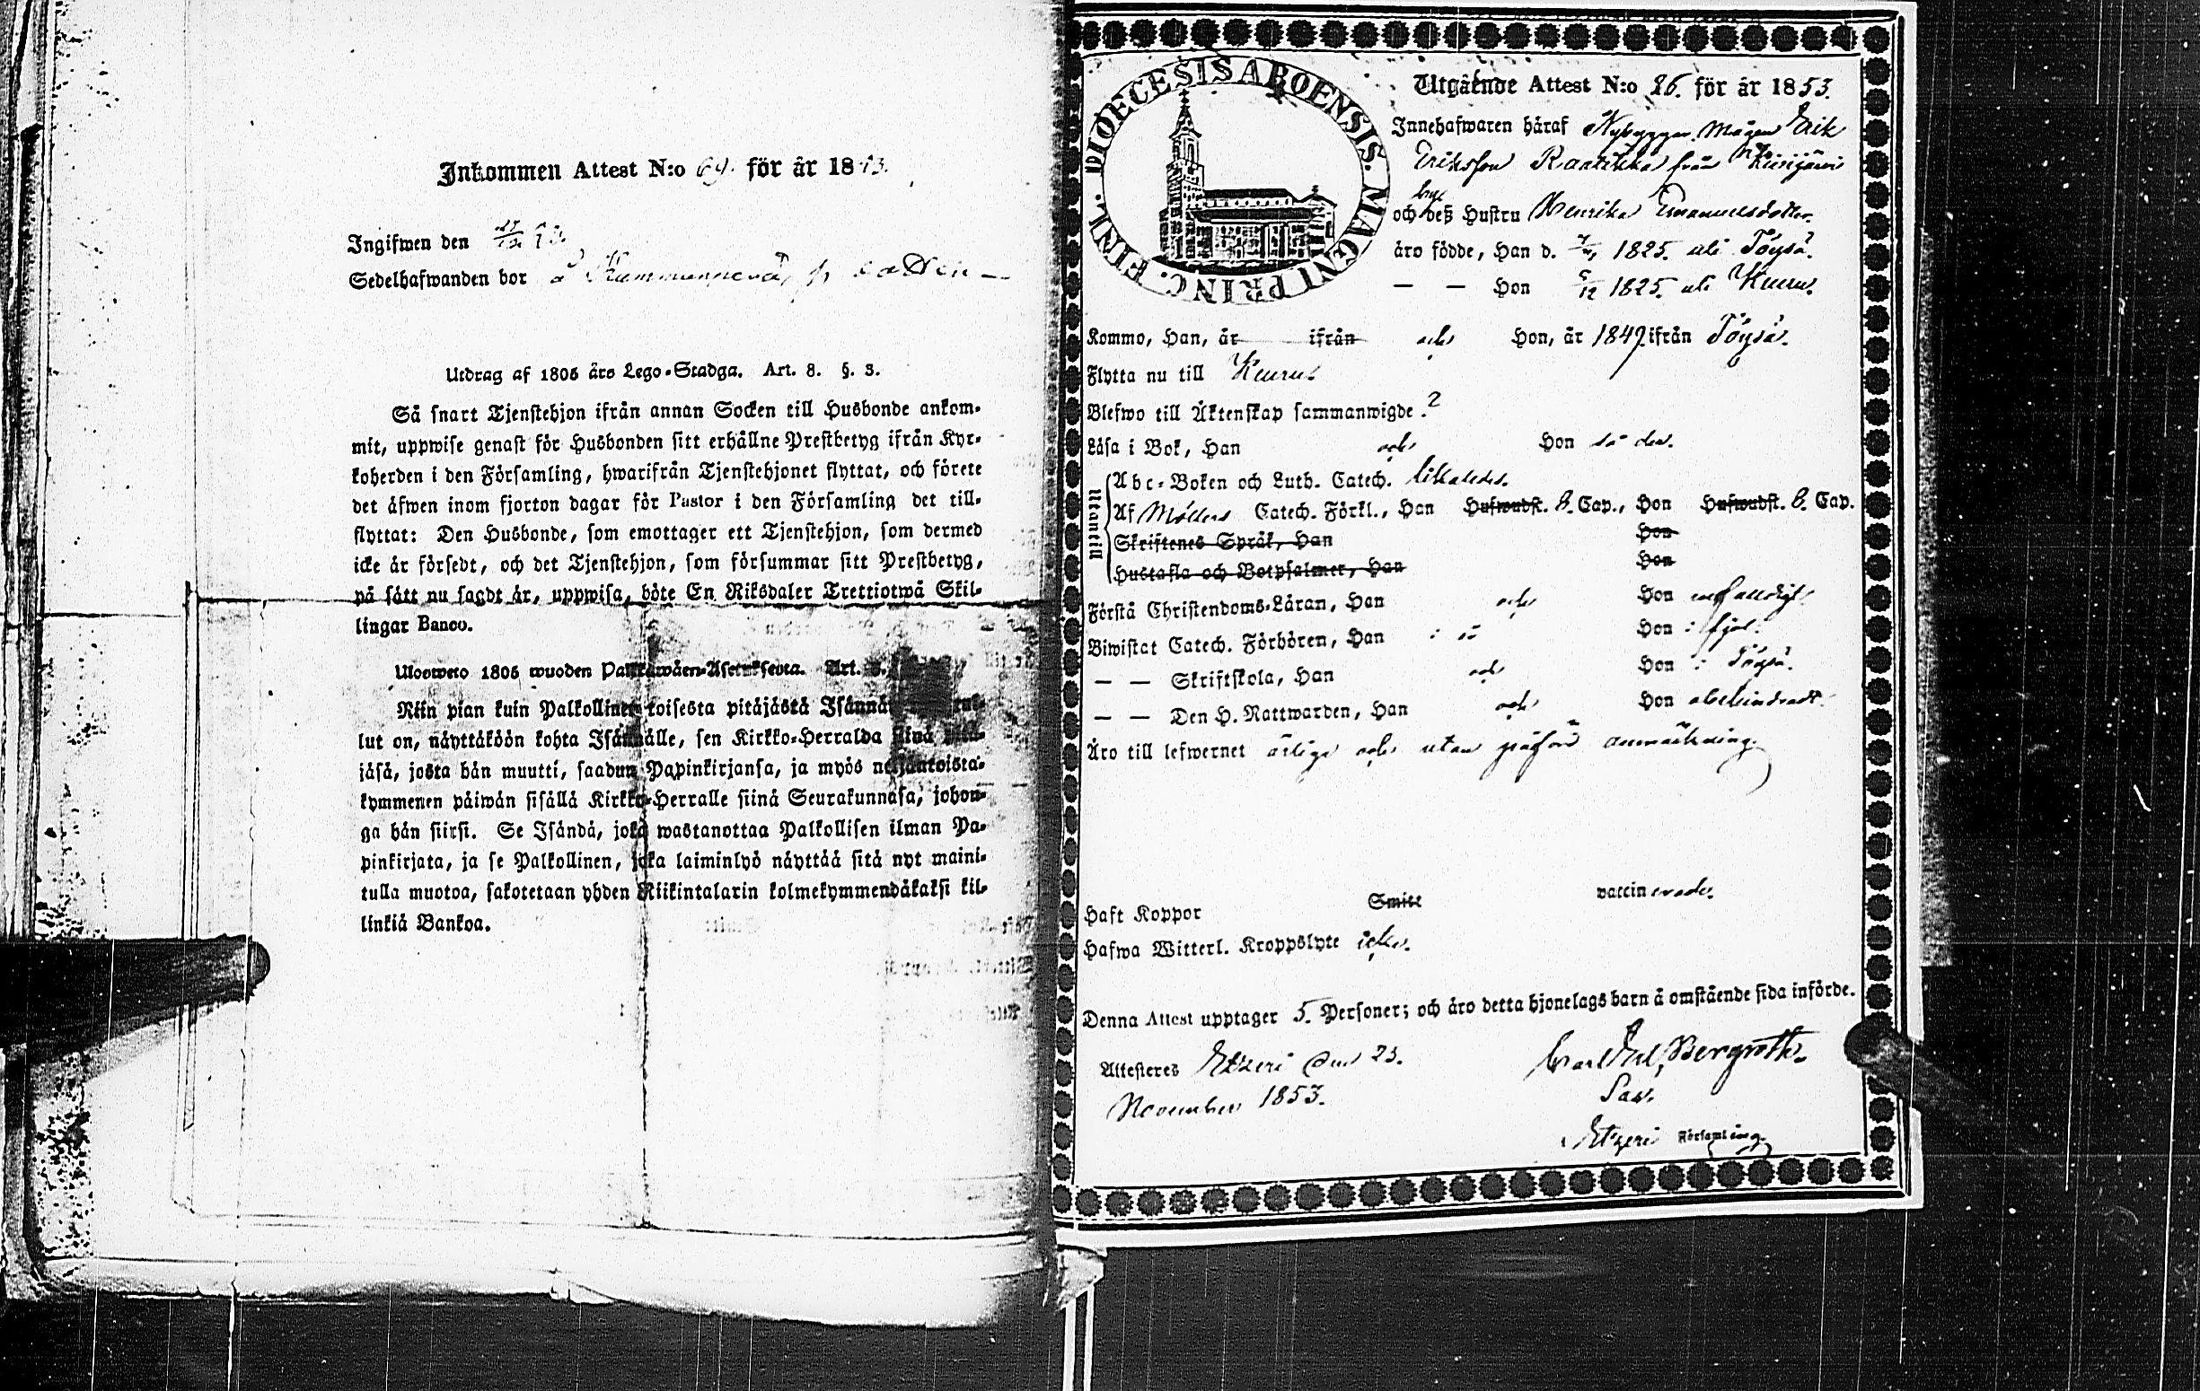 Inkommen Attest N:o 69. för år 18
Ingifwen den
Sedelhafwanden bor å
Utdrag af 1805 års Lego-Stadga. Art. 8. §. 3.
Så snart Tjenstehjon ifrån annan Socken till Husbonde ankom-
mit, uppwise genast för Husbonden sitt erhållne Prestbetyg ifrån Kyr-
koherden i den Församling, hwarifrån Tjenstehjonet flyttat, och förete
det äfwen inom fjorton dagar för Pastor i den Församling det till-
flyttat: Den Husbonde, som emottager ett Tjenstehjon, som dermed
icke är försedt, och det Tjenstehjon, som försummar sitt Prestbetyg,
på sätt nu sagdt är, uppwisa, böte En Riksdaler Trettiotwå Skil-
lingar Banco.
Ulosweto 1805 wuoden Palkkawäen-Asetuksesta. Art. 8.
Niin pian kuin Palkollinen toisesta pitäjästä Isännä
lut on, näyttäköön kohta Isännälle, sen Kirkko-Herralda siinä pitä-
jäsä, josta hän muutti, saadun Papinkirjansa, ja myös neljäntoista-
kymmenen päiwän sisällä Kirkko-Herralle siinä Seurakunnasa, johon-
ga hän siirsi. Se Isändä, joka wastanottaa Palkollisen ilman Pa-
pinkirjata, ja se Palkollinen, joka laiminlyö näyttää sitä nyt maini-
tulla muotoa, sakotetaan yhden Riikintalarin kolmekymmendäkaksi kil-
linkiä Bankoa.
DIOECESIS ABOENSIS. MAGNI PRINC. FINL.
Utgående Attest N:o 26. för år 1853.
Innehafwaren häraf Nybyggar Mågen Erik
Eriksson Raatikka från
by
och deß Hustru Henrika Emanuelsdotter.
äro födde, Han d. 1825. uti Töysä.
— — Hon 5/12 1825. uti Keuru.
Kommo, Han, år ifrån och Hon, år 1849. ifrån Töysä.
Flytta nu till Keuru.
Blefwo till Äktenskap sammanwigde. ?
Läsa i Bok, Han och Hon
Utantill
Abc-Boken och Luth. Catech. likaledes.
Af Möllers Catech. Förkl., Han Hufwudst. 8. Cap., Hon Hufwudst. 8. Cap.
Skriftenes Språk, Han Hon
Hustafla och Botpsalmer, Han Hon
Förstå Christendoms-Läran, Han och Hon
Biwistat Catech. Förhören, Han Hon
— — Skriftskola, Han och Hon i Töysä.
— — Den H. Nattwarden, Han och Hon obehindradt.
Äro till lefwernet ärliga och utan påförd anmärkning.
Haft Koppor Smitt vaccinerade.
Hafwa Witterl. Kroppslyte icke.
Denna Attest upptager 5. Personer; och äro detta hjonelags barn å omstående sida införde.
Attesteres Etzeri den 23.
November 1853.
Carl Bergroth.
Sac.
Etzeri Församling